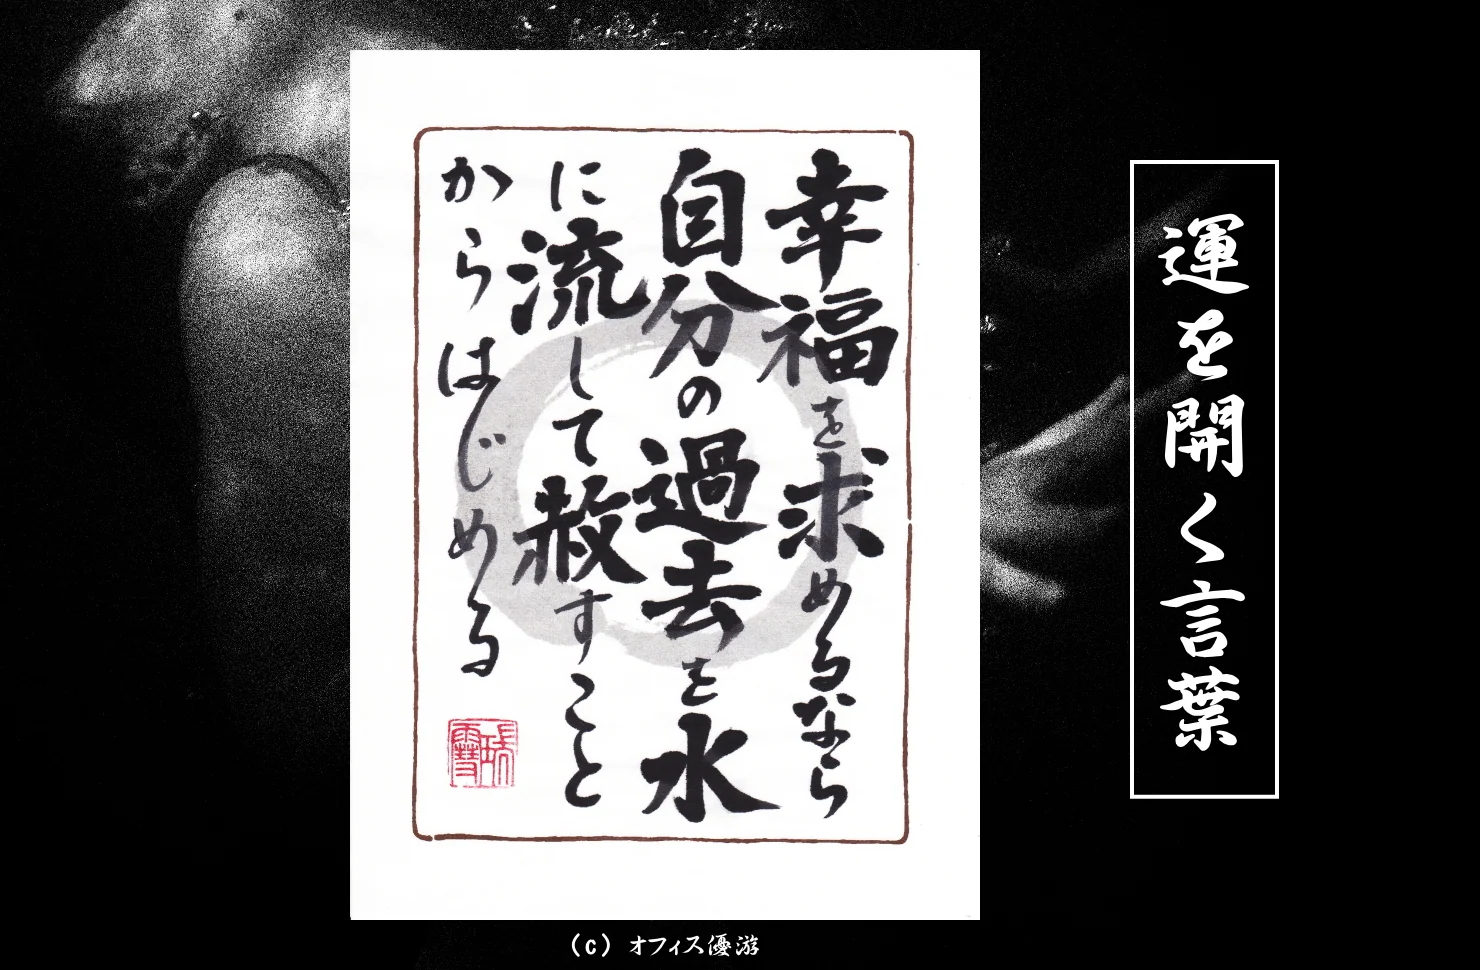 運を開く言葉
幸福を求めるなら
自分の過去を水
に流して赦すこと
からはじめる
(c) オフィス優游